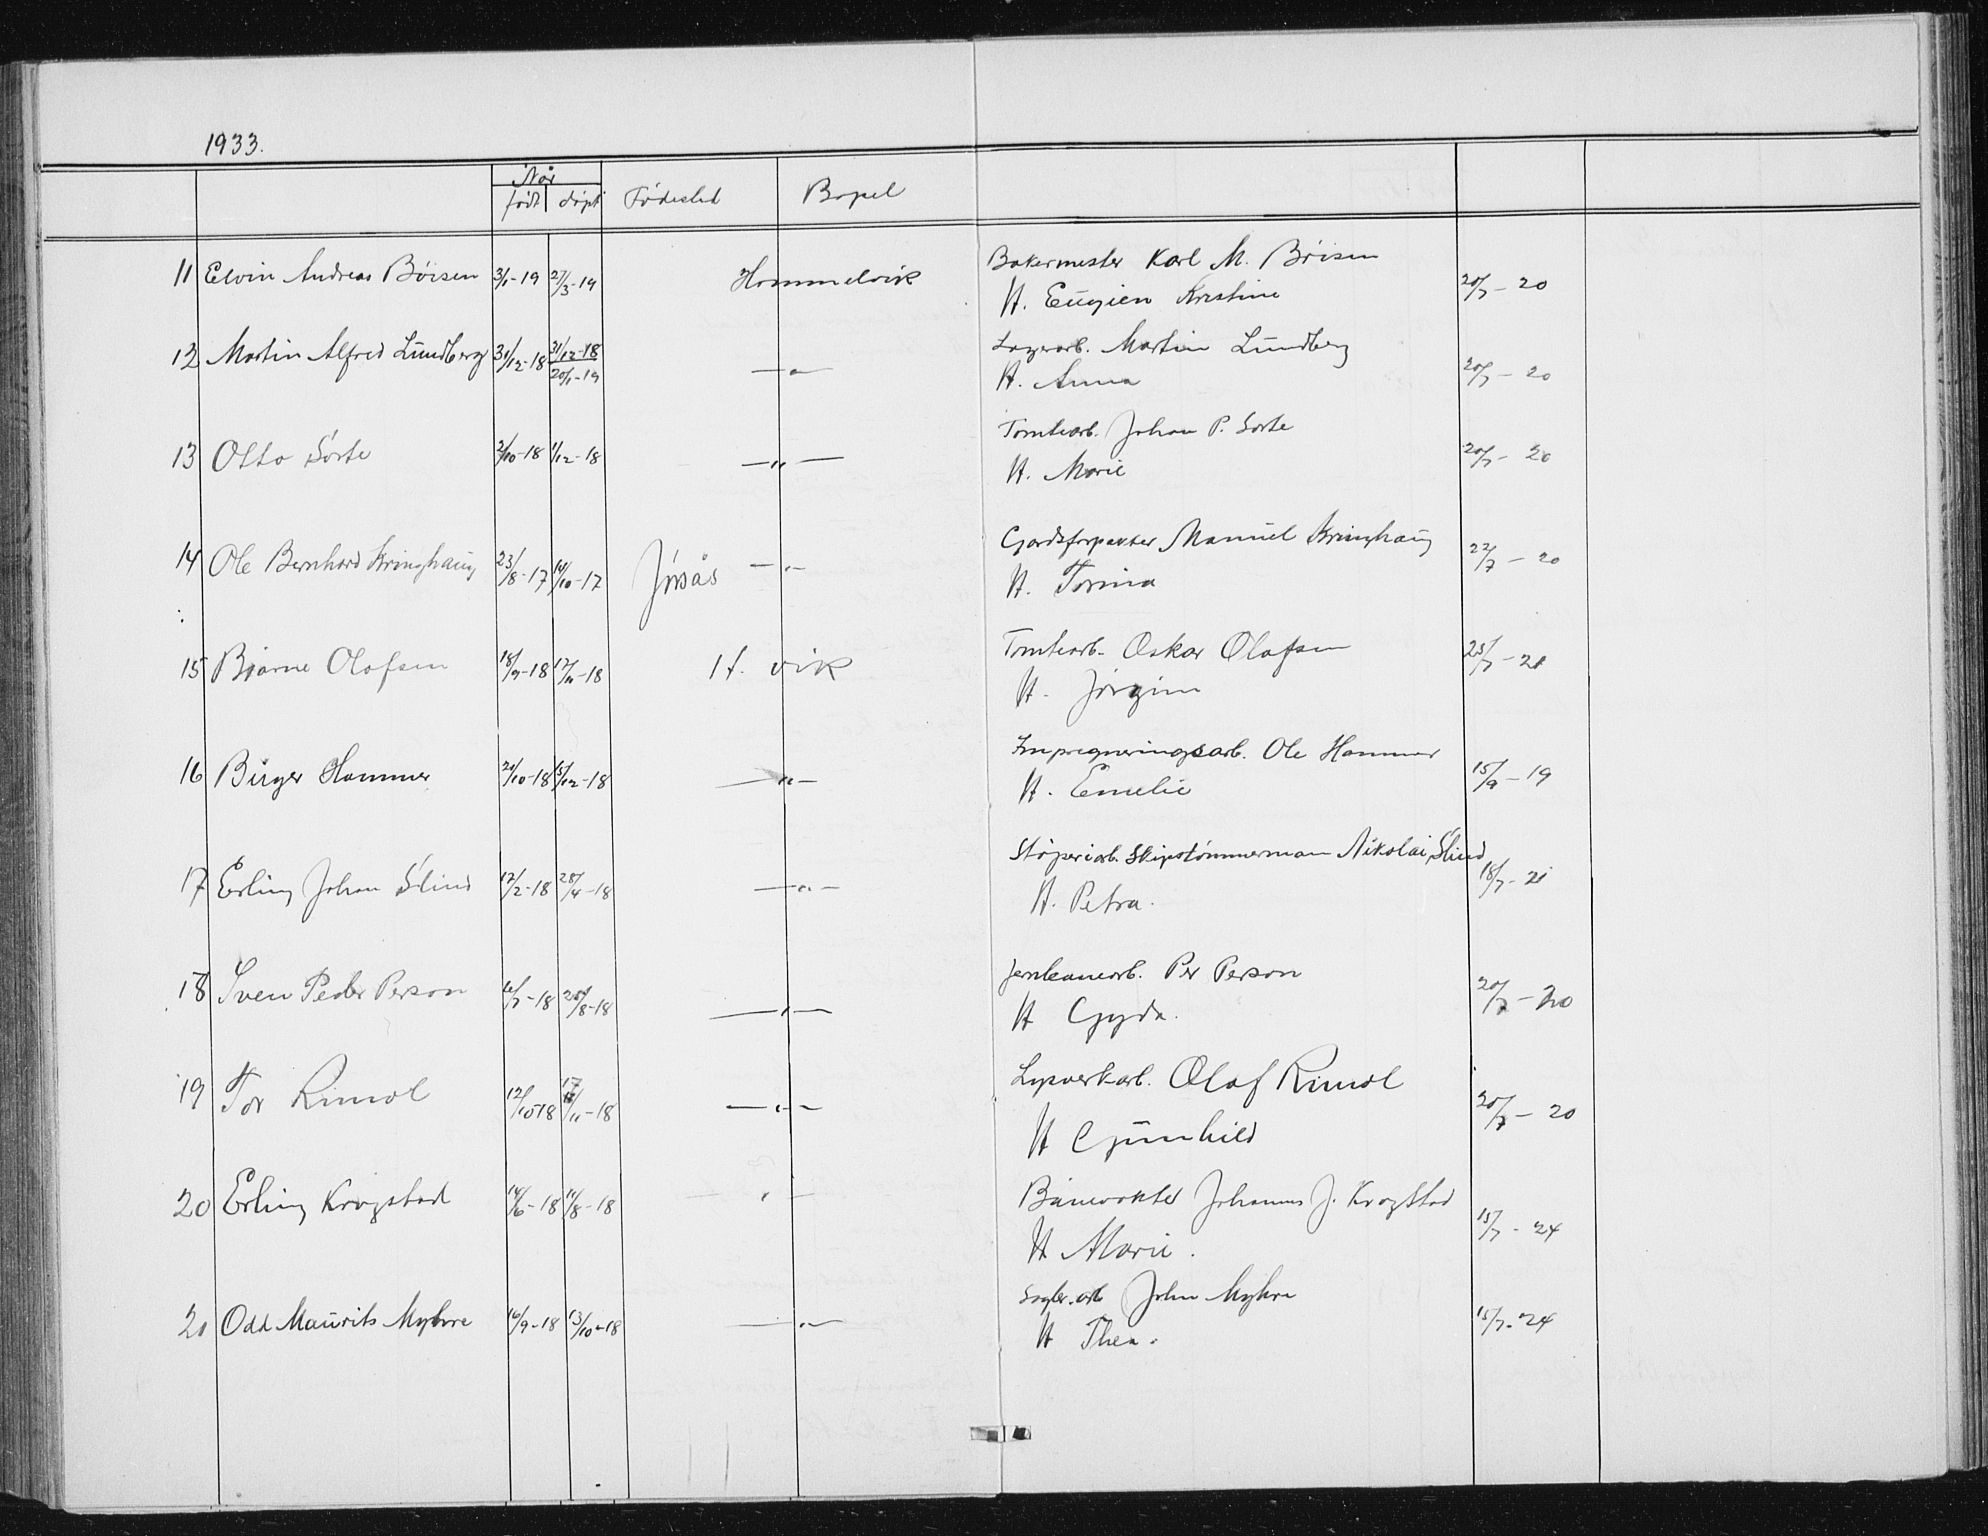 1933.
Når
født døpt Fødested Bopel
11 Elvin Andreas Bøisen 3/1-19 27/3-19 Hommelvik Bakermester Karl M. Bøisen
H. Eugien Kristine 20/7-20
12 Martin Alfred Lundberg 31/12-18 31/12-18 Lagerarb. Martin Lundberg
20/1-19 —"— H. Anna 20/7-20
13 Otto Sorte 2/10-18 1/12-18 —"— Tomtearb. Johan P. Sorte
H. Marie 20/7-20
14 Ole Bernhard Kringhaug 23/8-17 14/10-17 Jøsås —"— Gardsforpakter Manuel Kringhaug
H. Torina 22/7-20
15 Bjarne Olafsen 18/9-18 17/11-18 H. vik Tomtearb. Oskar Olafsen
H. Jørgine 25/7-21
16 Birger Hammer 20/10-18 15/12-18 —"— Impregneringsarb. Ole Hammer
H. Emelie 15/9-19
17 Erling Johan Slind 12/2-18 28/4-18 —"— Støperiarb. Skipstømmerman Nikolai Slind
H. Petra. 18/7-21
18 Sven Peder Person 6/7-18 25/8-18 —"— Jernbanearb. Per Person
H Gyda. 20/7-20
19 Tor Rimol 12/10-18 17/11-18 —"— Lysverkarb. Olaf Rimol
H Gunhild 20/7-20
20 Erling Krogstad 14/6-18 11/8-18 —"— Banevokter Johannes J. Krogstad
H Marie. 15/7-24
21 Odd Maurits Myhre 16/9-18 13/10-18 —"— Sagbr. arb John Myhre
H Thea. 15/7-24